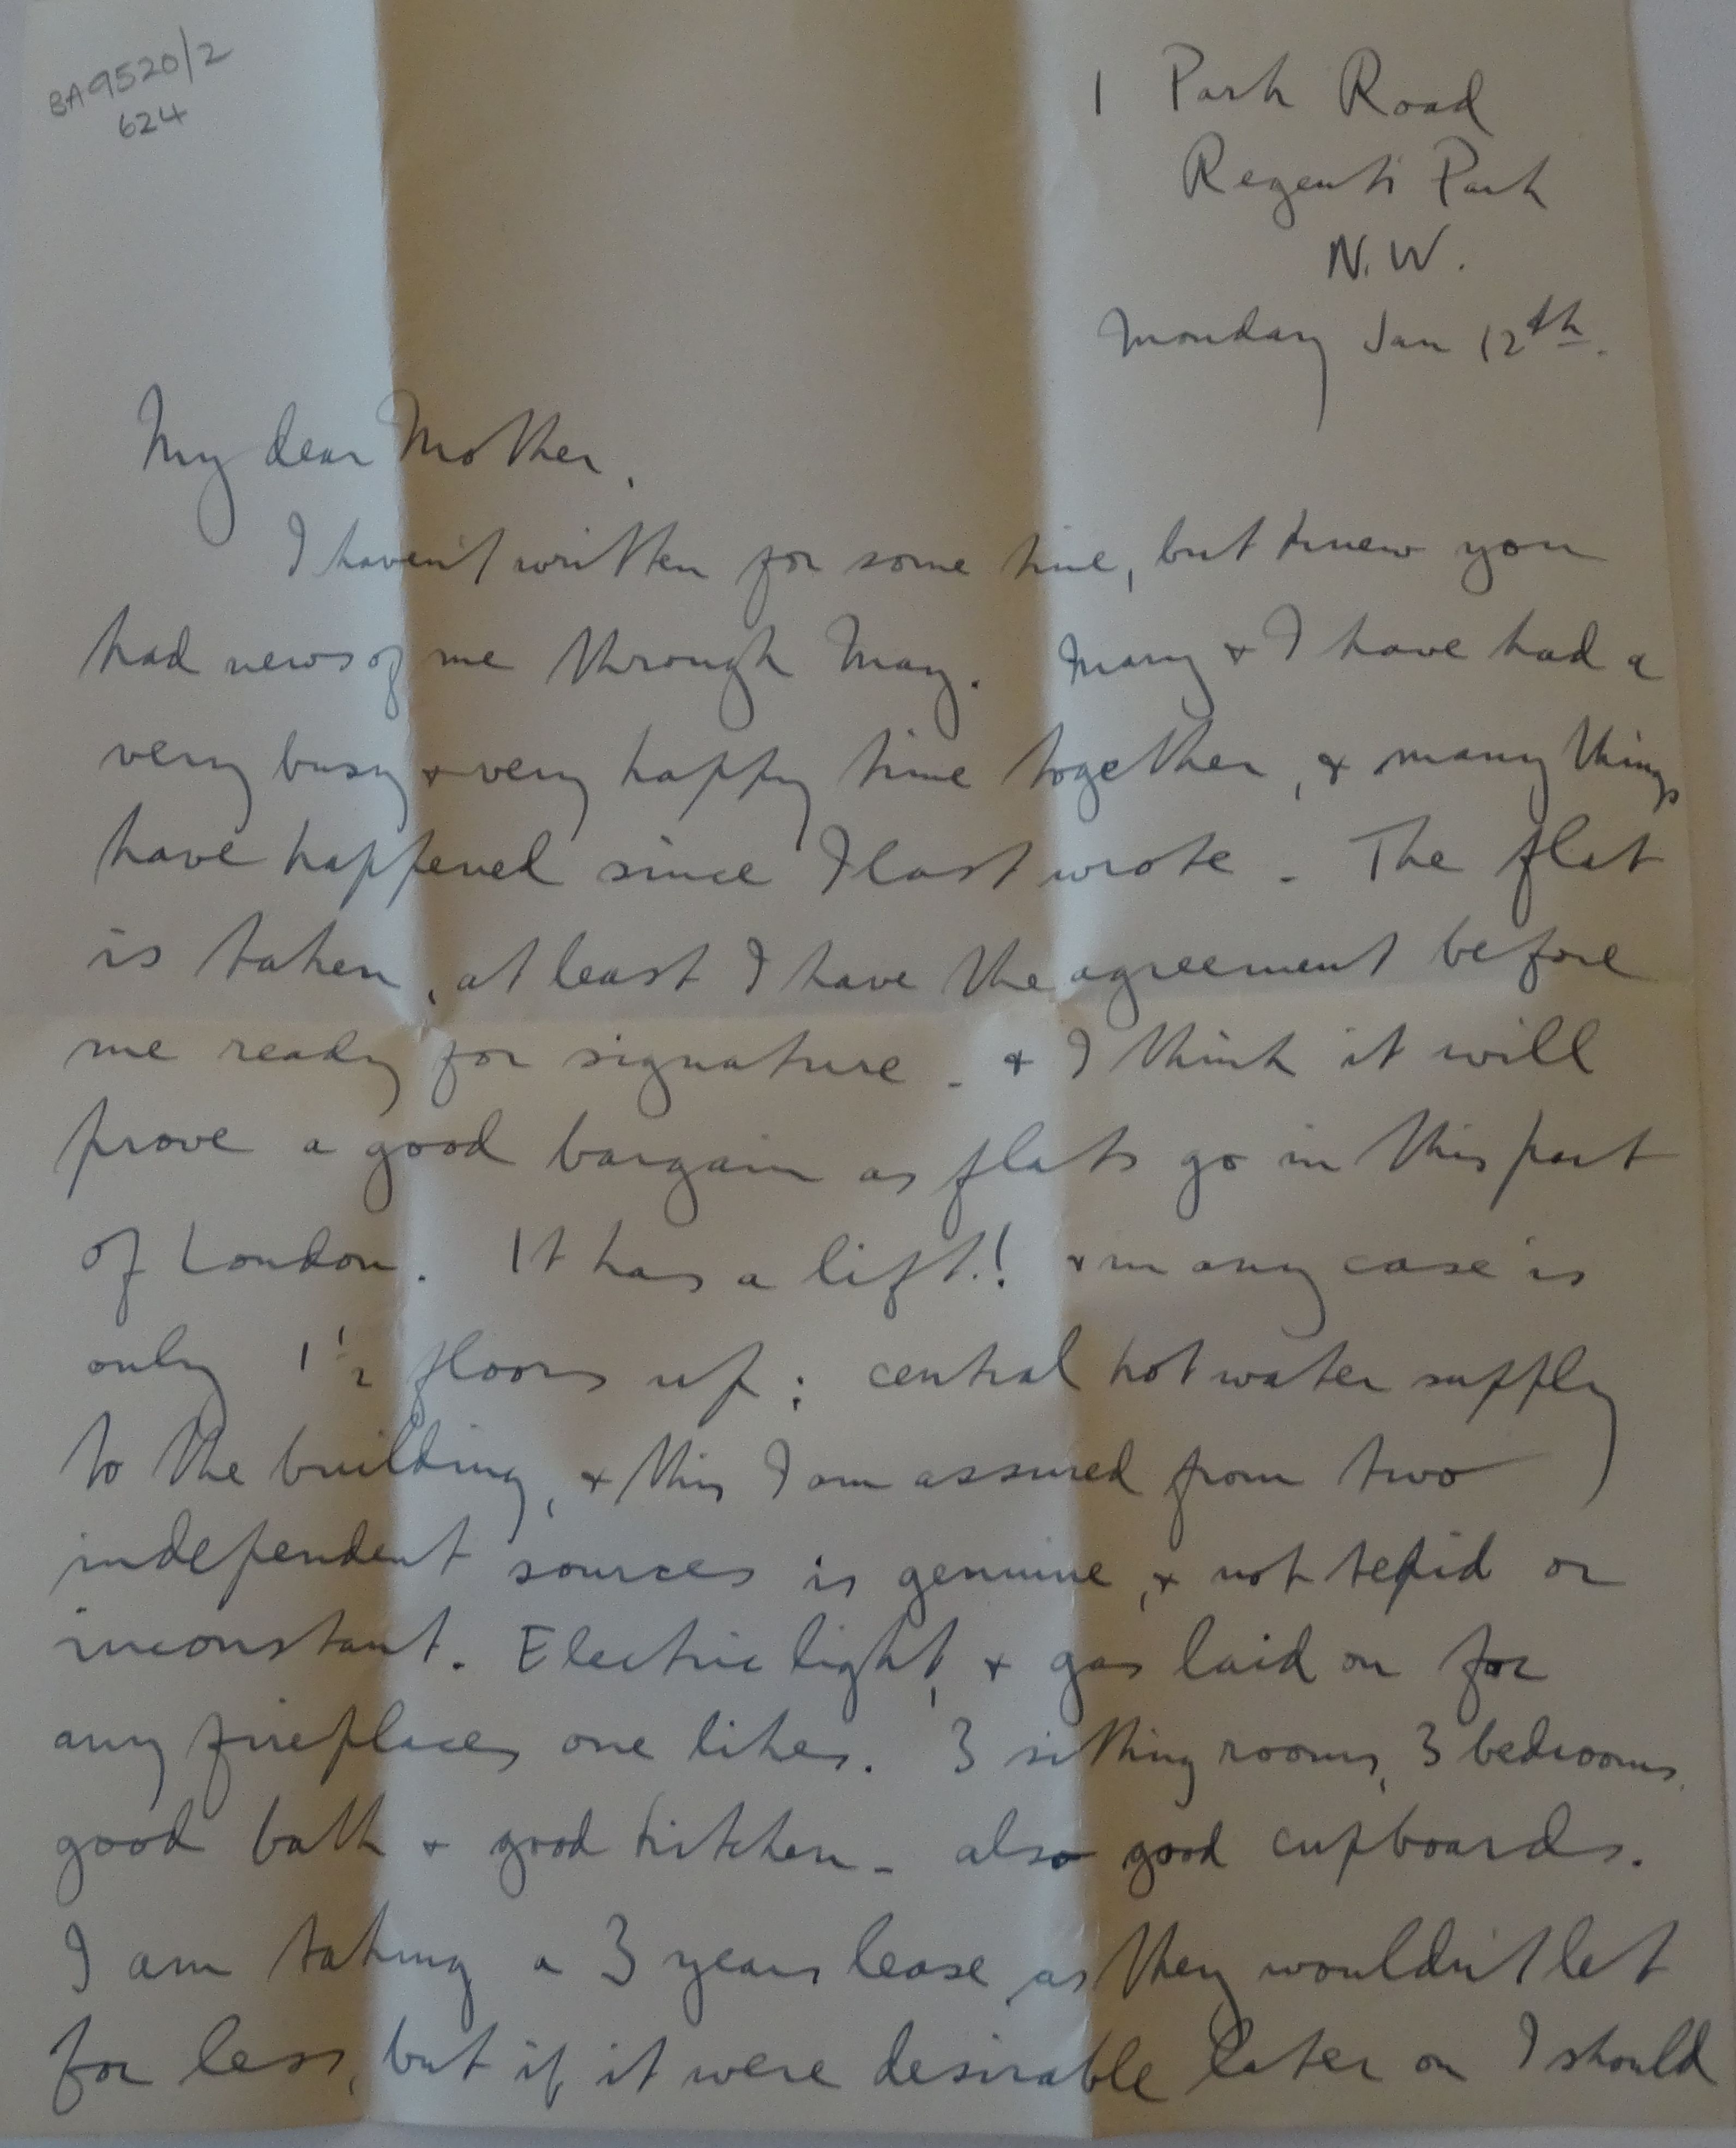 BA9520/2
624
1 Park Road
Regents Park
N.W.
Monday Jan 12th.
My dear Mother,
I haven't written for some time, but knew you
had news of me through May. Mary & I have had a
very busy & very happy time together, & many things
have happened since I last wrote. The flat
is taken, at least I have the agreement before
me ready for signature - & I think it will
prove a good bargain as flats go in this part
of London. It has a lift! & in any case is
only 1½ floors up; central hot water supply
to the building, & this I am assured from two
independent sources is genuine, & not tepid or
inconstant. Electric light, & gas laid on for
any fireplaces one likes. 3 sitting rooms, 3 bedrooms,
good bath & good kitchen - also good cupboards.
I am taking a 3 years lease as they wouldn't let
for less, but if it were desirable later on I should